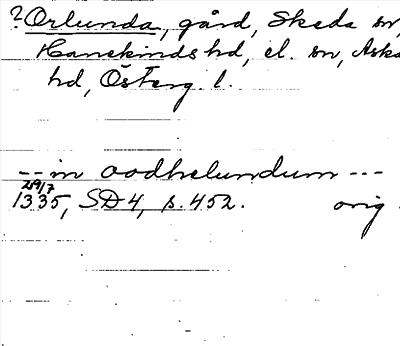 ?Orlunda, gård, Skeda sn,
Hanekinds hd, el. sn, Aska
hd, Österg. l.
--- in oodhelundum ---
29/7
1335, SD 4, s. 452. orig.